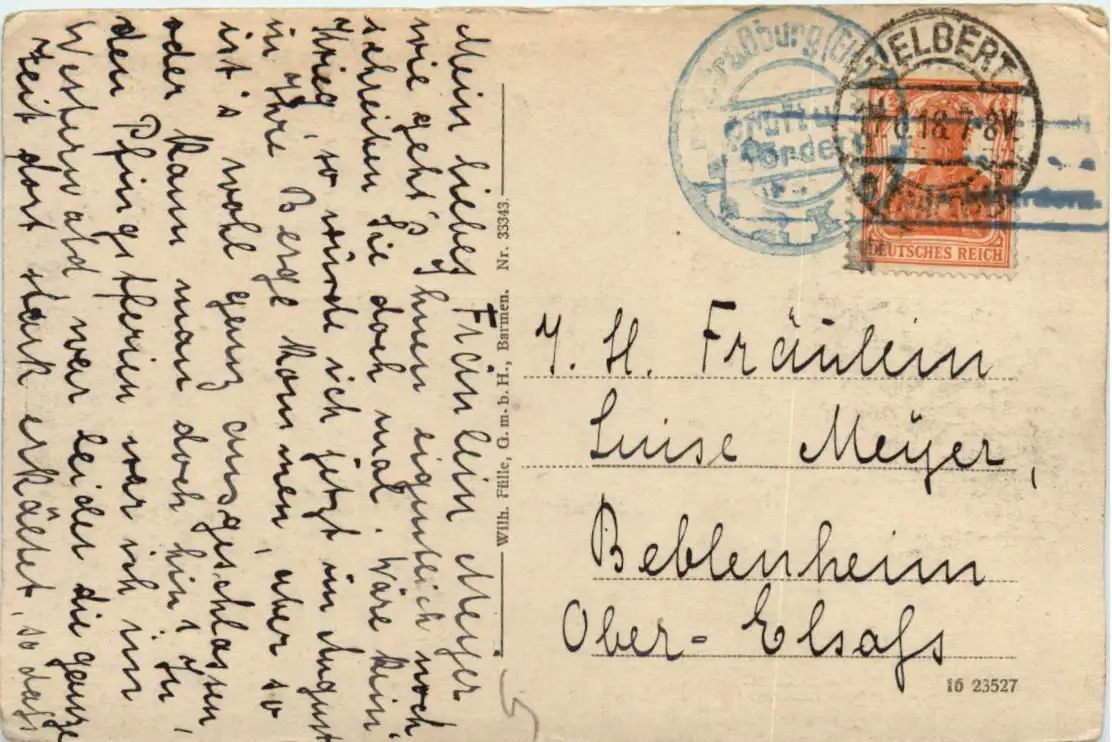 Mein liebes Fräulein Meyer
wie geht's Ihnen eigentlich noch
schreiben Sie doch mal. Wäre kein
Krieg, so würde ich jetzt im August
in Ihre Berge kommen, aber so
ist's wohl ganz ausgeschlossen,
oder kann man doch hin? In
den Pfingstferien war ich im
Westerwald war leider die ganze
Zeit dort stark erkältet, so dafs
Wilh. Fülle, G. m. b. H., Barmen. Nr. 33343.
Straßburg (Els.)
VELBERT
7.8.18. 7-8V
DEUTSCHES REICH
J. H. Fräulein
Luise Meÿer,
Beblenheim
Ober-Elsafs
16 23527